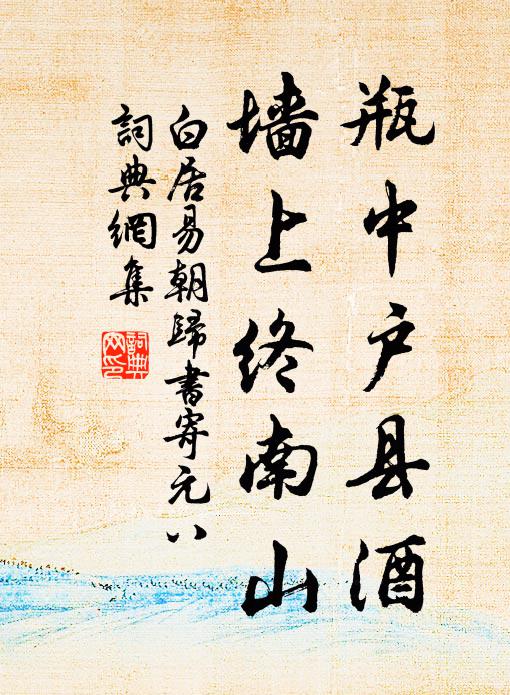 瓶中户县酒
墙上终南山
白居易朝歸書寄元八
詞典網集
詞典网印